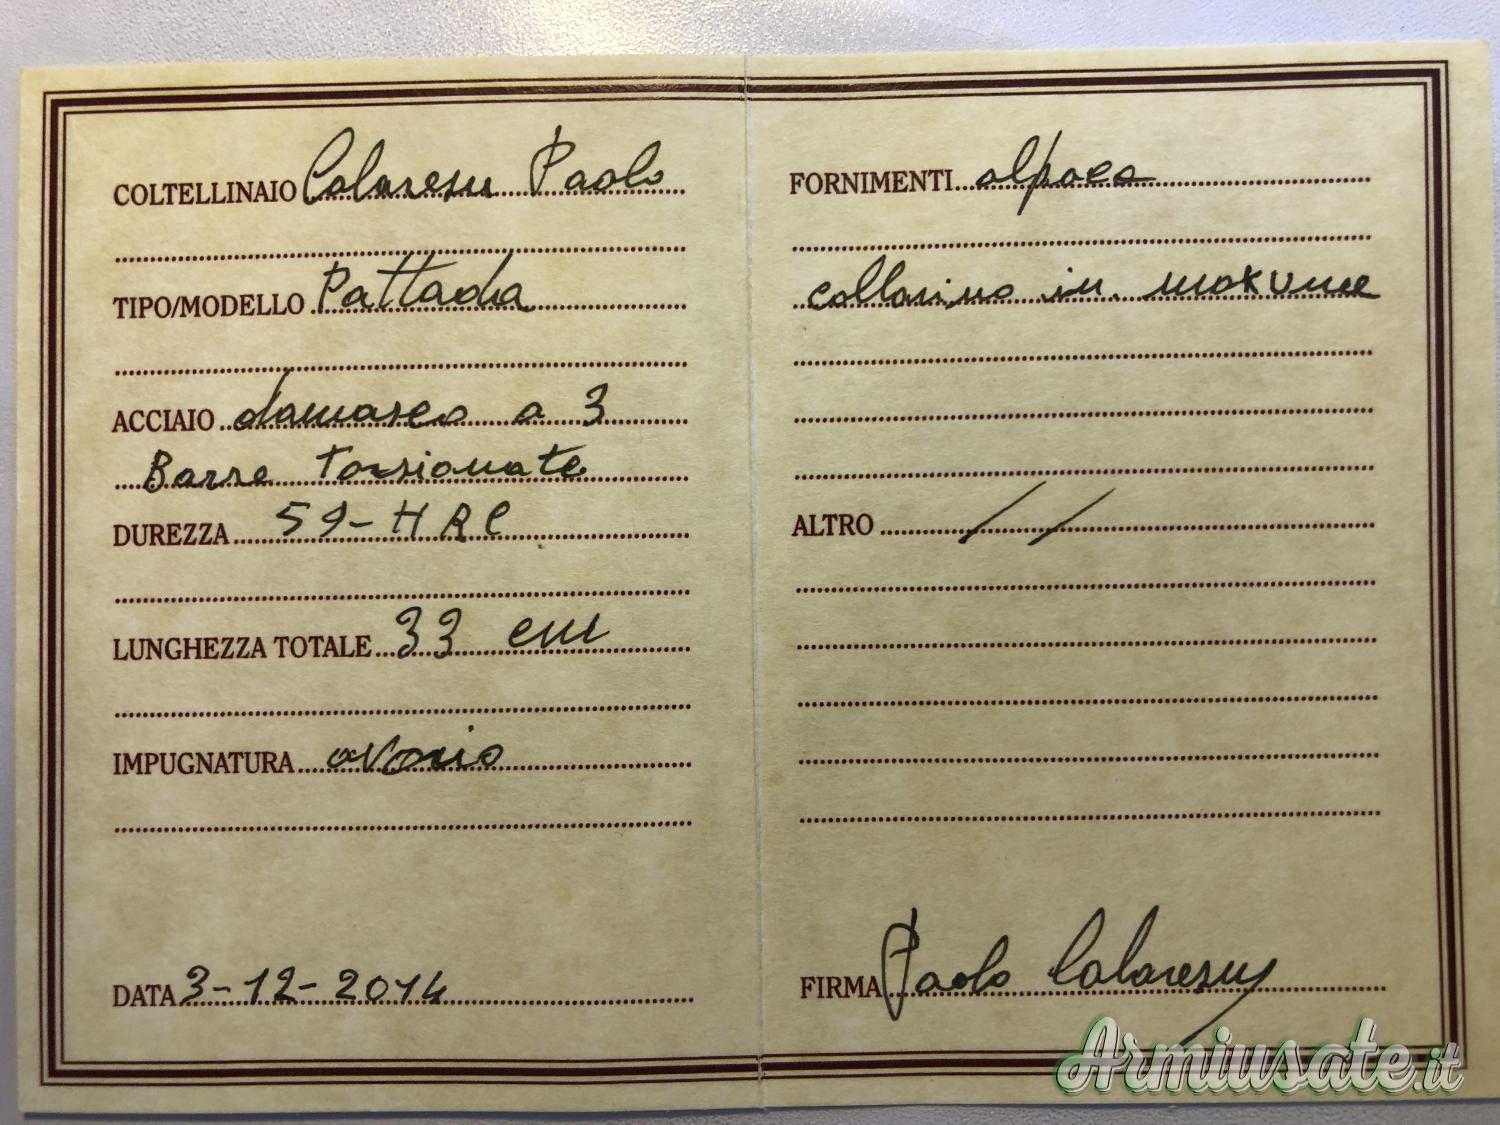 COLTELLINAIO Calaresu Paolo
TIPO/MODELLO Pattada
ACCIAIO damasco a 3
Barre torsionate
DUREZZA 59-HRC
LUNGHEZZA TOTALE 33 cm
IMPUGNATURA avorio
DATA 3-12-2014
FORNIMENTI alpaca
collarino in mokume
ALTRO / /
FIRMA Paolo Calaresu
Armiusate.it